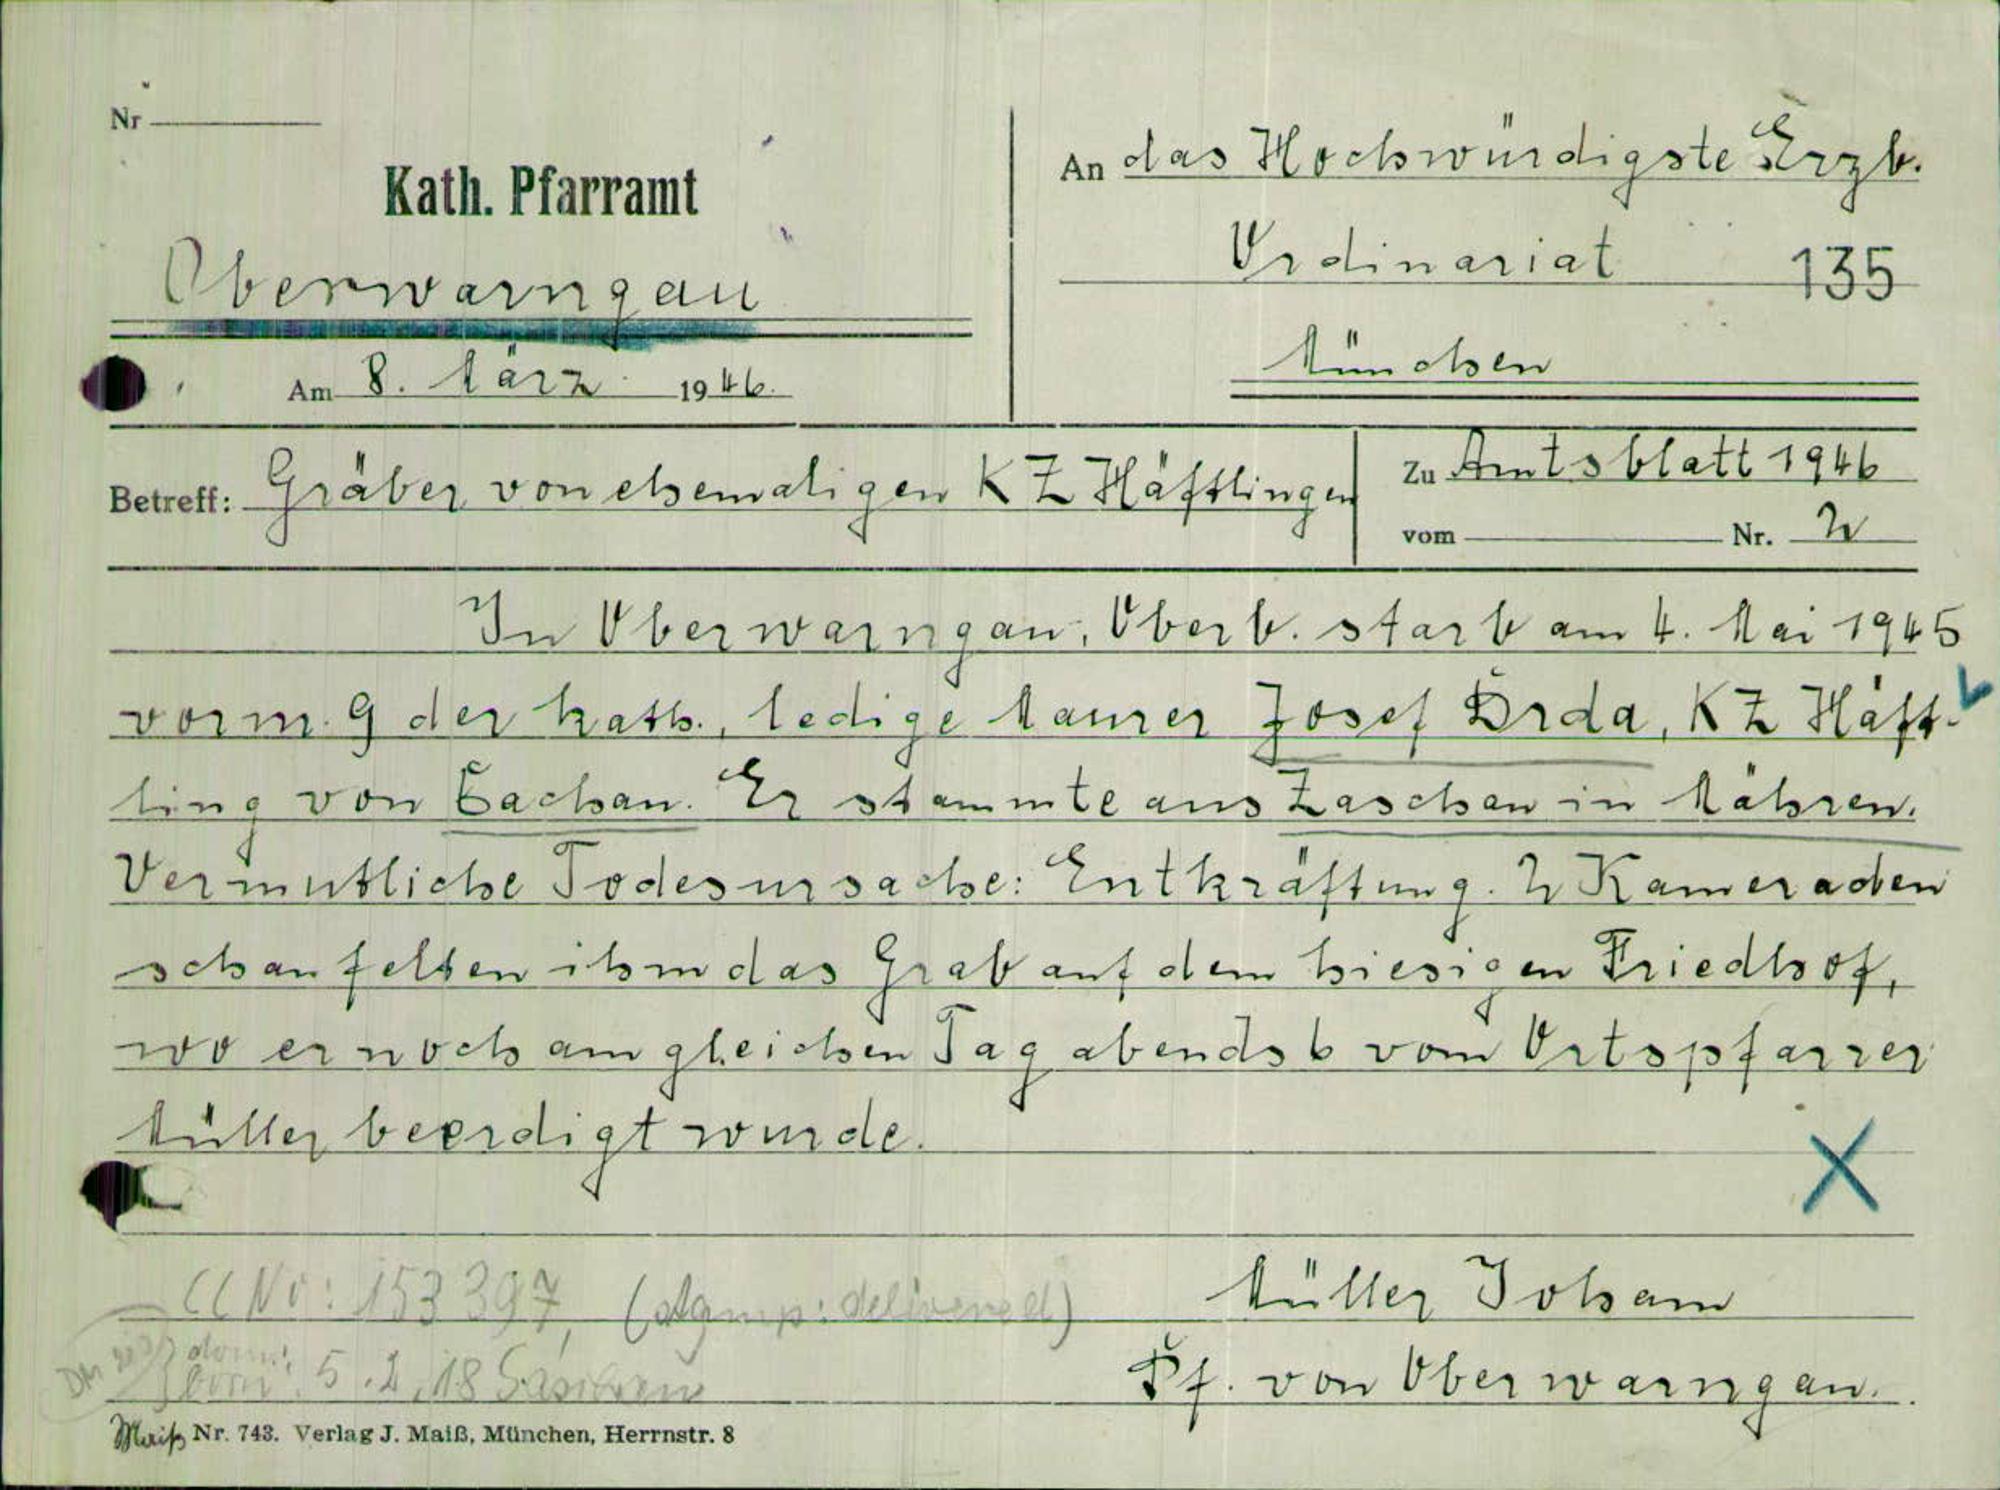 Nr
Kath. Pfarramt
Oberwarngau
Am 8. März 1946.
An das Hochwürdigste Erzb.
Ordinariat 135
München
Betreff: Gräber von ehemaligen KZ Häftlingen
Zu Amtsblatt 1946
vom Nr. 2
In Oberwarngau, Oberb. starb am 4. Mai 1945
vorm. 9 der kath., ledige Maurer Josef Drda, KZ Häft-
ling von Dachau. Er stammte aus Zaschau in Mähren.
Vermutliche Todesursache: Entkräftung. 2 Kameraden
schaufelten ihm das Grab auf dem hiesigen Friedhof,
wo er noch am gleichen Tag abends 6 vom Ortspfarrer
Müller beerdigt wurde.
Müller Johann
Pf. von Oberwarngau.
CC No: 153397, (stamp: delivered)
born: 5.2.18
Maiß Nr. 743. Verlag J. Maiß, München, Herrnstr. 8